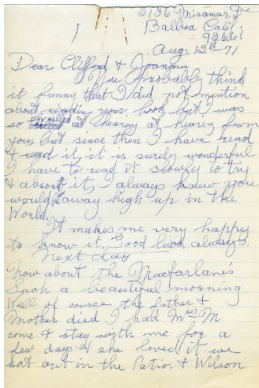 2136 Miramar Dr
Balboa Calif
92661
Aug. 12th 71
Dear Clifford & Joanna
You Probably think
it funny that I did not mention
about reading your book but I was
so at hearing from
you but since then I have read
& read it, it is surely wonderful
I have to read it slowly to try
& absorb it, I always knew you
would away high up in the
World,
It makes me very happy
to know it. Good luck, always.
next day
Now about the Macfarlane's
Such a beautiful morning
Well of course the father &
Mother died I had Mrs M
come & stay with me for a
few days & she loved it we
sat out in the Patio, & Wilson